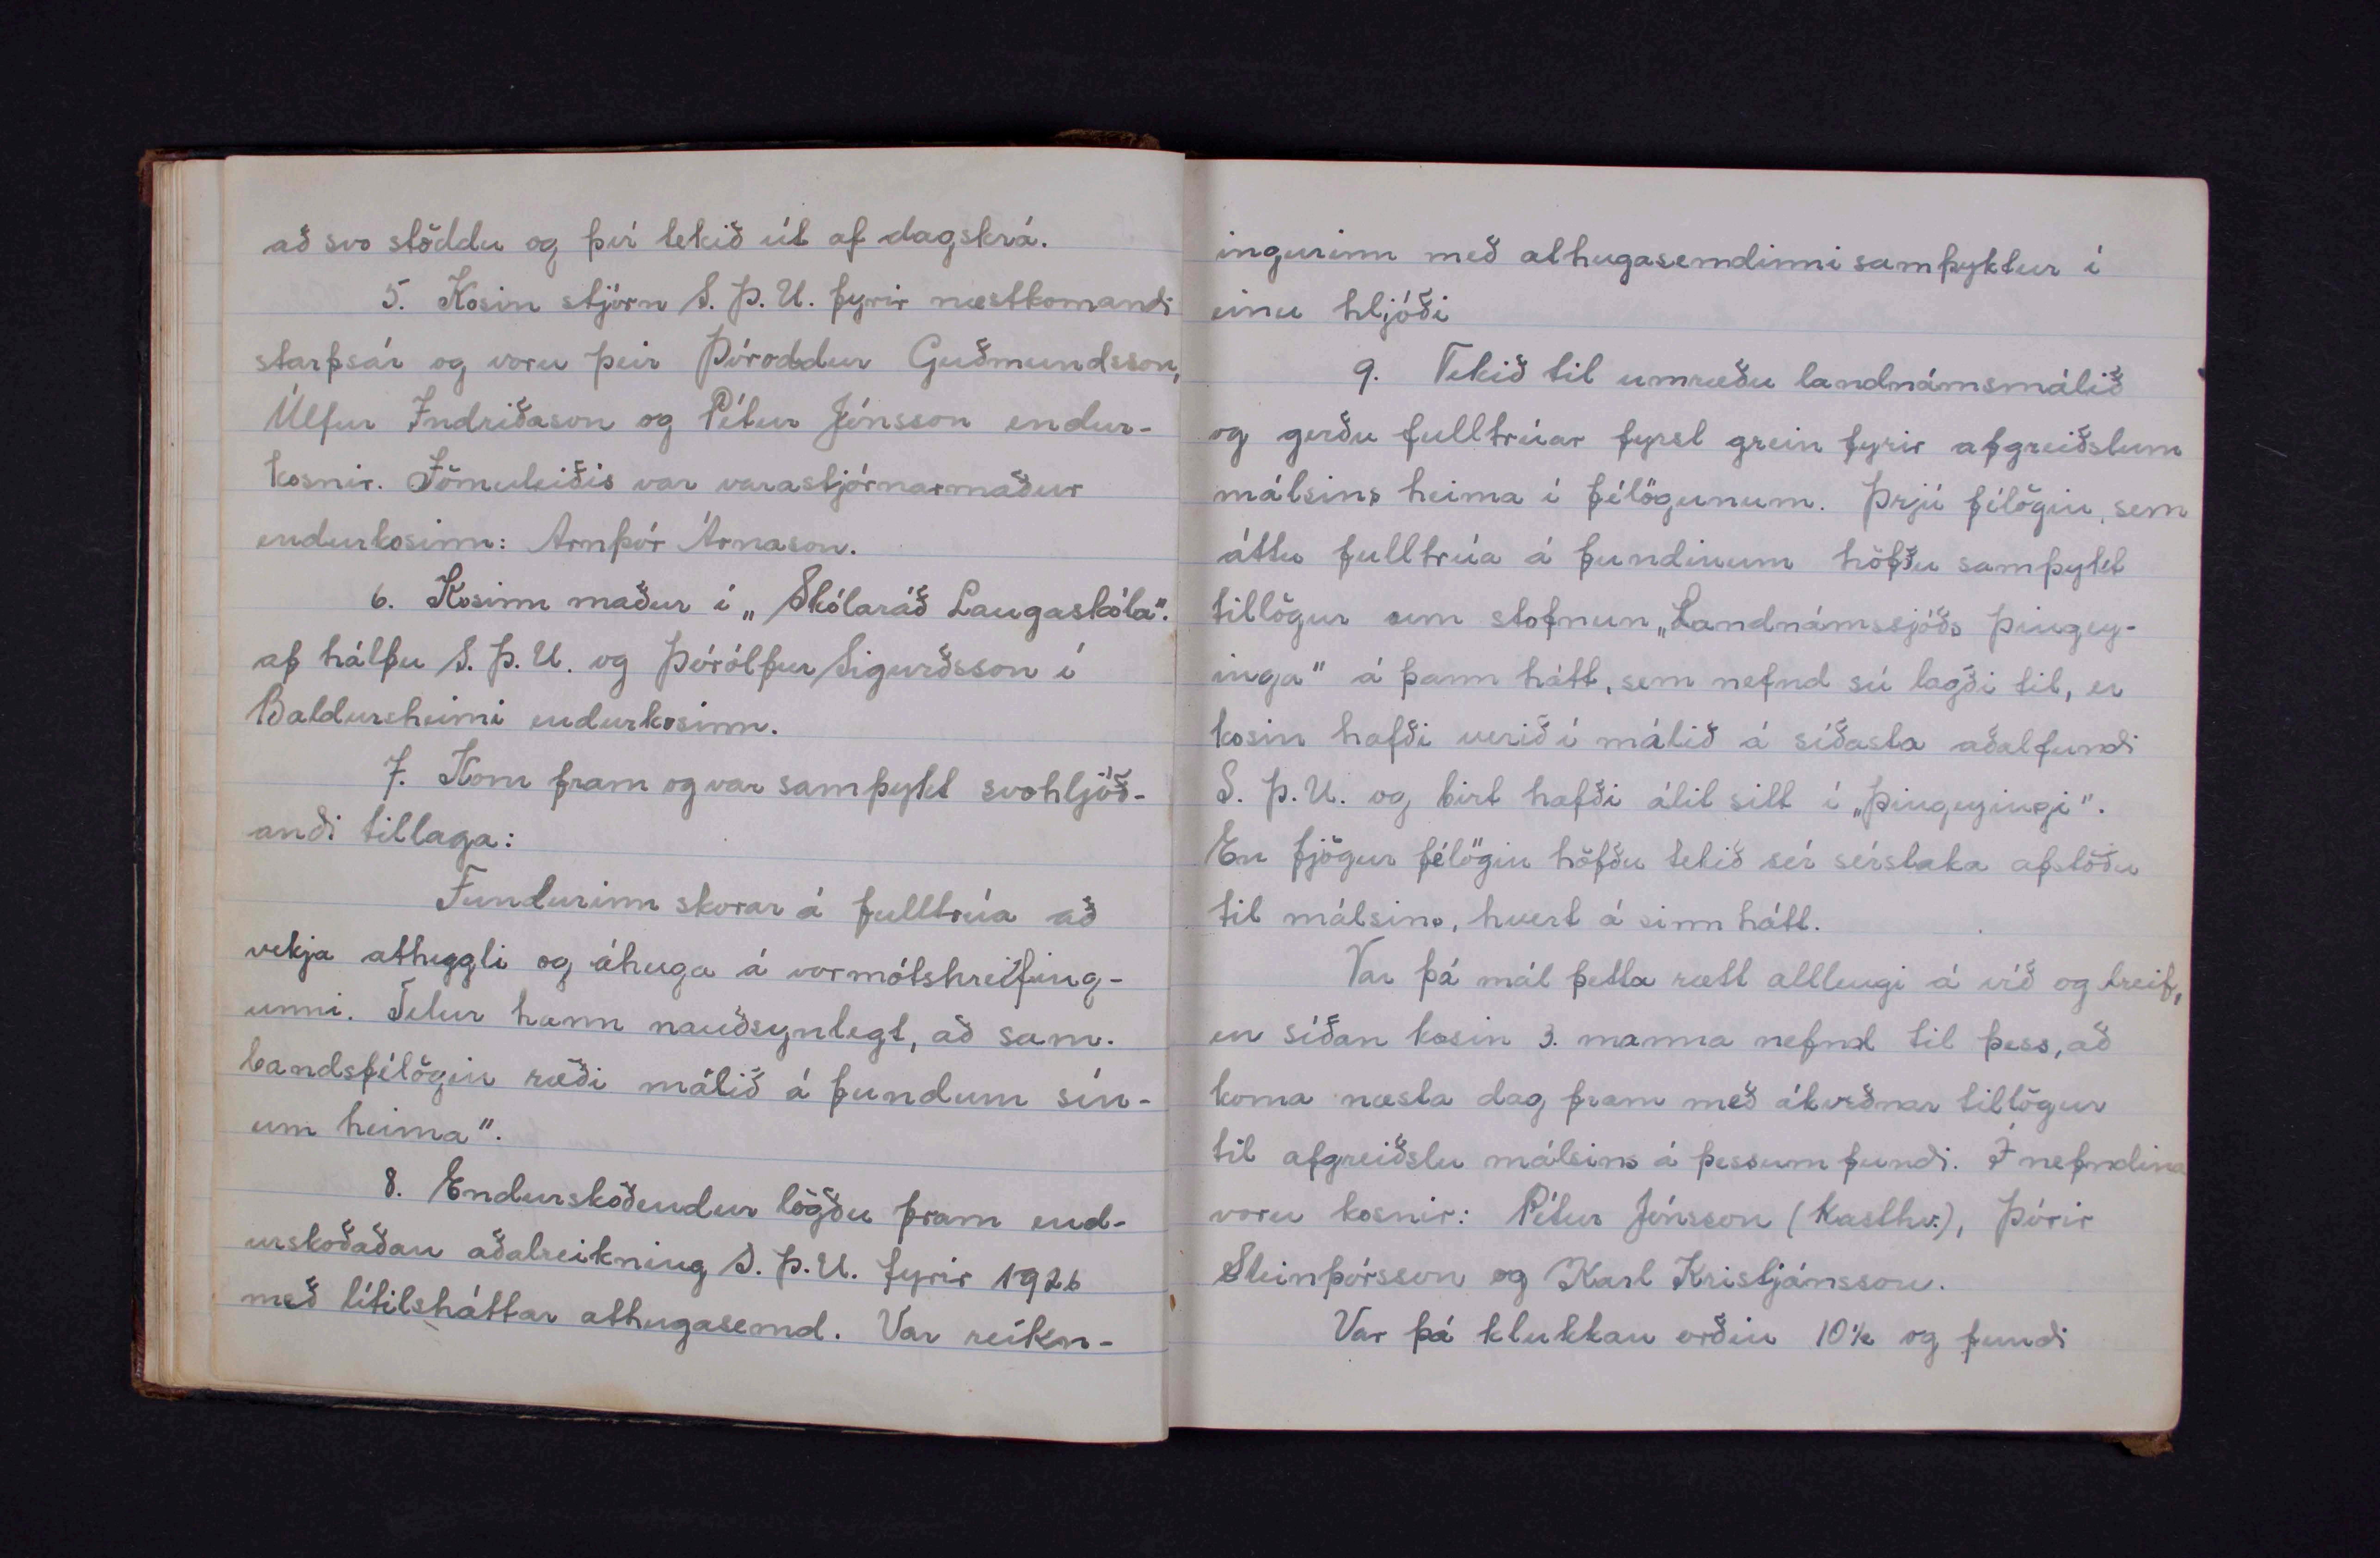 að svo stöddu og því tekið út af dagskrá.
5. Kosin stjórn S. Þ. U. fyrir næstkomandi
starfsár og voru þeir Þóroddur Guðmundsson,
Úlfur Indriðason og Pétur Jónsson endur-
kosnir. Sömuleiðis var varastjórnarmaður
endurkosinn: Arnþór Árnason.
6. Kosinn maður í „Skólaráð Laugaskóla".
af hálfu S. Þ. U. og Þórólfur Sigurðsson í
Baldursheimi endurkosinn.
7. Kom fram og var samþykt svohljóð-
andi tillaga:
Fundurinn skorar á fulltrúa að
vekja athyggli og áhuga á vormótshreifing-
unni. Telur hann nauðsynlegt, að sam-
bandsfélögin ræði málið á fundum sín-
um heima".
8. Endurskoðendur lögðu fram end-
urskoðaðan aðalreikning S. Þ. U. fyrir 1926
með lítilsháttar athugasemd. Var reikn-
ingurinn með athugasemdinni samþyktur í
einu hljóði
9. Tekið til umræðu landnámsmálið
og gerðu fulltrúar fyrst grein fyrir afgreiðslum
málsins heima í félögunum. Þrjú félögin, sem
áttu fulltrúa á fundinum höfðu samþykt
tillögur um stofnun „Landnámssjóðs Þingey-
inga" á þann hátt, sem nefnd sú lagði til, er
kosin hafði verið í málið á síðasta aðalfundi
S. Þ. U. og birt hafði álit sitt í „Þingeyingi".
En fjögur félögin höfðu tekið sér sérstaka afstöðu
til málsins, hvert á sinn hátt.
Var þá mál þetta rætt alllengi á víð og dreif,
en síðan kosin 3. manna nefnd til þess, að
koma næsta dag fram með ákveðnar tillögur
til afgreiðslu málsins á þessum fundi. Í nefndina
voru kosnir: Pétur Jónsson (Kasthv.), Þórir
Steinþórsson og Karl Kristjánsson.
Var þá klukkan orðin 10½ og fundi